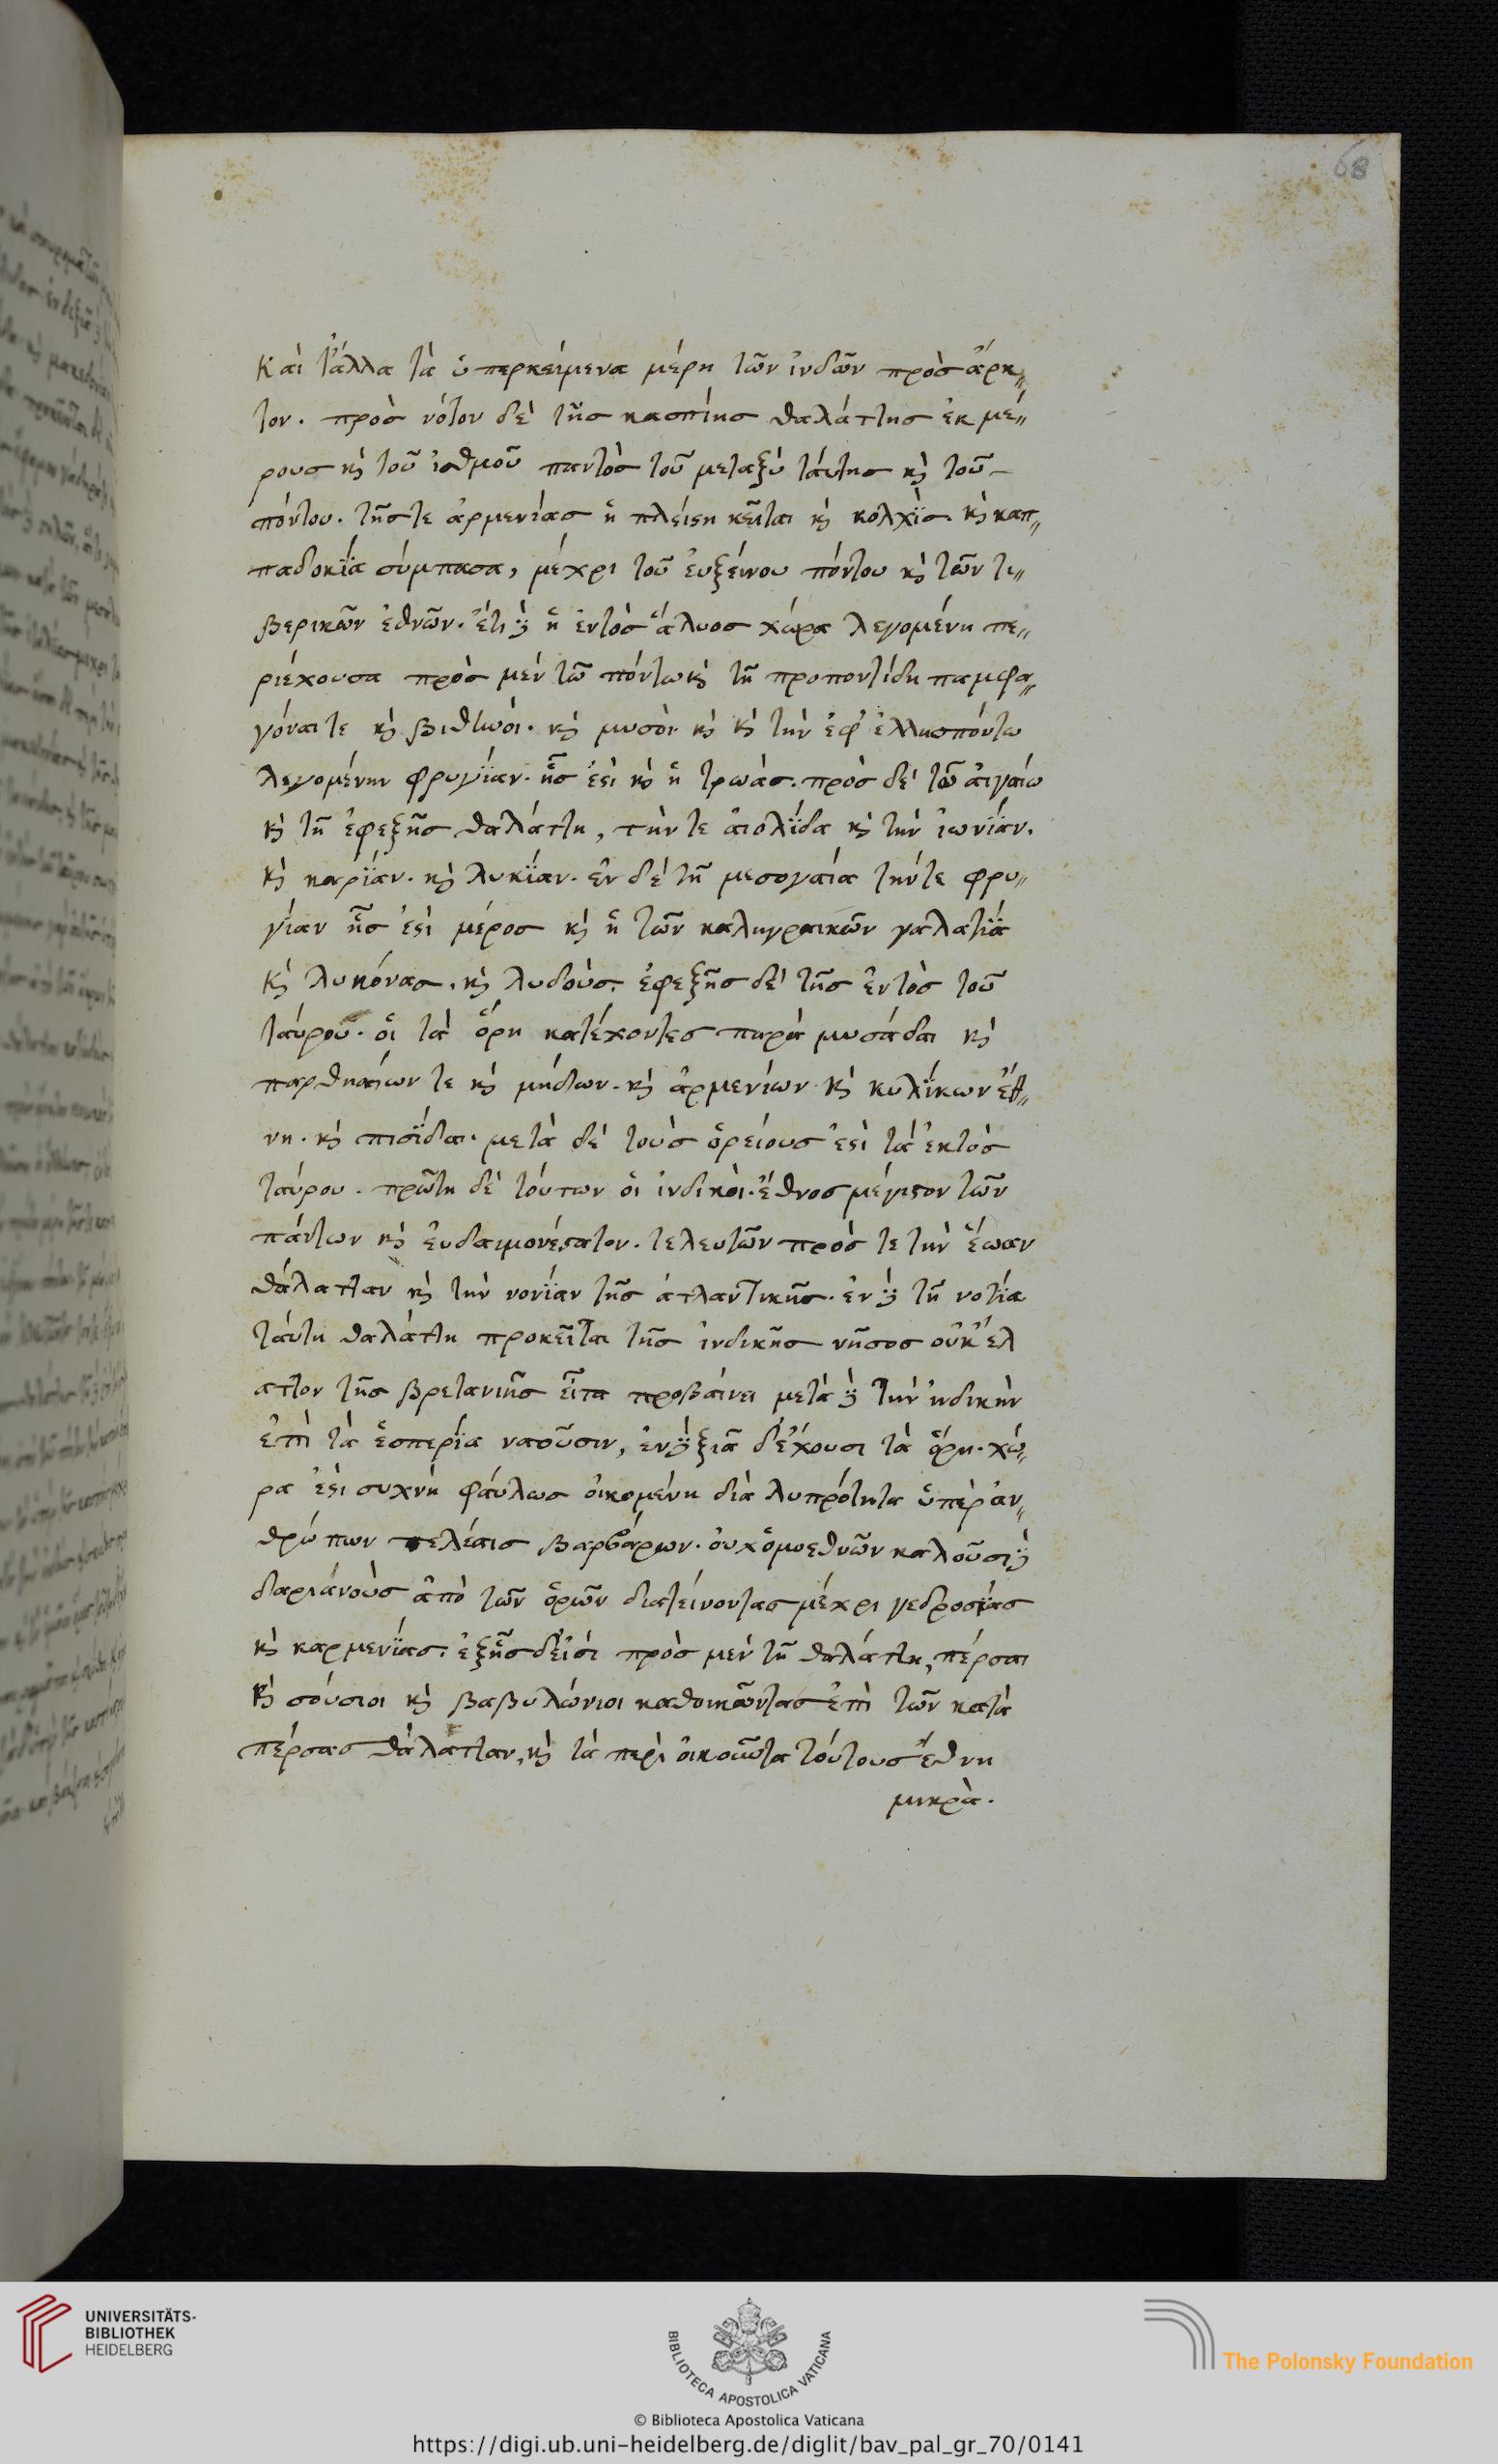 68
Καὶ τἄλλα τὰ ὑπερκείμενα μέρη τῶν ἰνδῶν πρὸσ ἄρκ„
τον. πρὸσ νότον δὲ τῆσ κασπίησ θαλάττησ ἐκ μέ„
ρουσ κὶ τοῦ ἰσθμοῦ παντὸσ τοῦ μεταξὺ ταύτησ κὶ τοῦ
πόντου. τῆστε ἀρμενίασ ἡ πλείϛη κεῖται κὶ κολχῒσ. κὶ καπ„
παδοκΐα σύμπασα, μέχρι τοῦ ἐυξείνου πόντου κὶ τῶν τι„
βερικῶν ἐθνῶν. ἔτι δὲ ἡ ἐντὸσ ἅλυοσ χώρα λεγομένη πε„
ριέχουσα πρὸσ μὲν τῶ πόντω κὶ τῆ προποντίδη παμφα„
γόναι τε κὶ βιθυνόι. κὶ μυσὸι κὶ κὶ τὴν ἐφ ἑλλησπόντω
λεγομένην φρυγΐαν. ἧσ ἐϛὶ κὶ ἡ τρωάσ. πρὸσ δὲ τῶ ἀιγαίω
κὶ τῆ ἐφεξῆσ θαλάττη, τὴν τε ἀιολΐδα κὶ τὴν ἰωνΐαν.
κὶ καρΐαν. κὶ λυκΐαν. ἐν δὲ τῆ μεσογαία τήν τε φρυ„
γίαν ἧσ ἐϛὶ μέροσ κὶ ἡ τῶν καληγραικῶν γαλατΐα
κὶ λυκόνασ. κὶ λυδοὺσ. ἐφεξῆσ δὲ τῆσ ἐντὸσ τοῦ
ταύρου. ὁι τὰ ὄρη κατέχοντεσ παρὰ μυσάδαι κὶ
παρθηαίων τε κὶ μήδων. κὶ ἀρμενίων κὶ κυλΐκων ἔθ„
νη. κὶ πισΐδαι. μετὰ δὲ τοὺσ ὀρείουσ ἐϛὶ τὰ ἐκτὸσ
ταύρου. πρῶτη δὲ τούτων ὁι ἰνδικὸι. ἔθνοσ μέγιϛον τῶν
πάντων κὶ ἐυδαιμονέϛατον. τελευτῶν πρὸσ τε τὴν ἕωαν
θάλατταν κὶ τὴν νονΐαν τῆσ ἀτλαντικῆσ. ἐν δὲ τῆ νοτΐα
ταύτη θαλάττη προκεῖται τῆσ ἰνδικῆσ νῆσοσ οὐκ ἔλ
αττον τῆσ βρετανικῆσ εἶτα προβαίνει μετὰ δὲ τὴν ἰνδικὴν
ἐπὶ τὰ ἑσπερΐα ναοῦσιν, ἐν δὲ ξιᾶ δ' ἔχουσι τὰ ὄρη. χώ„
ρα ἐϛὶ συχνὴ φάυλωσ ὀικομένη διὰ λυπρότητα ὑπὲρ ἀν„
θρώπων τελέαισ βαρβάρων. ὀυχ ὁμοεθνῶν καλοῦσι δὲ
δαριάνοὺσ ἀπὸ τῶν ὀρῶν διατείνοντασ μέχρι γεδροσΐασ
κὶ καρμενΐασ. ἐξῆσ δ' εἰσὶ πρὸσ μὲν τῆ θαλάττη, πέρσαι
κὶ σούσιοι κὶ βαβυλώνιοι καθοικοῦντασ ἐπὶ τῶν κατὰ
πέρσασ θάλατταν, κὶ τὰ περὶ ὀικοῦντα τούτουσ ἔθνη
μικρὰ.
UNIVERSITÄTS-
BIBLIOTHEK
HEIDELBERG
BIBLIOTECA APOSTOLICA VATICANA
The Polonsky Foundation
© Biblioteca Apostolica Vaticana
https://digi.ub.uni-heidelberg.de/diglit/bav_pal_gr_70/0141